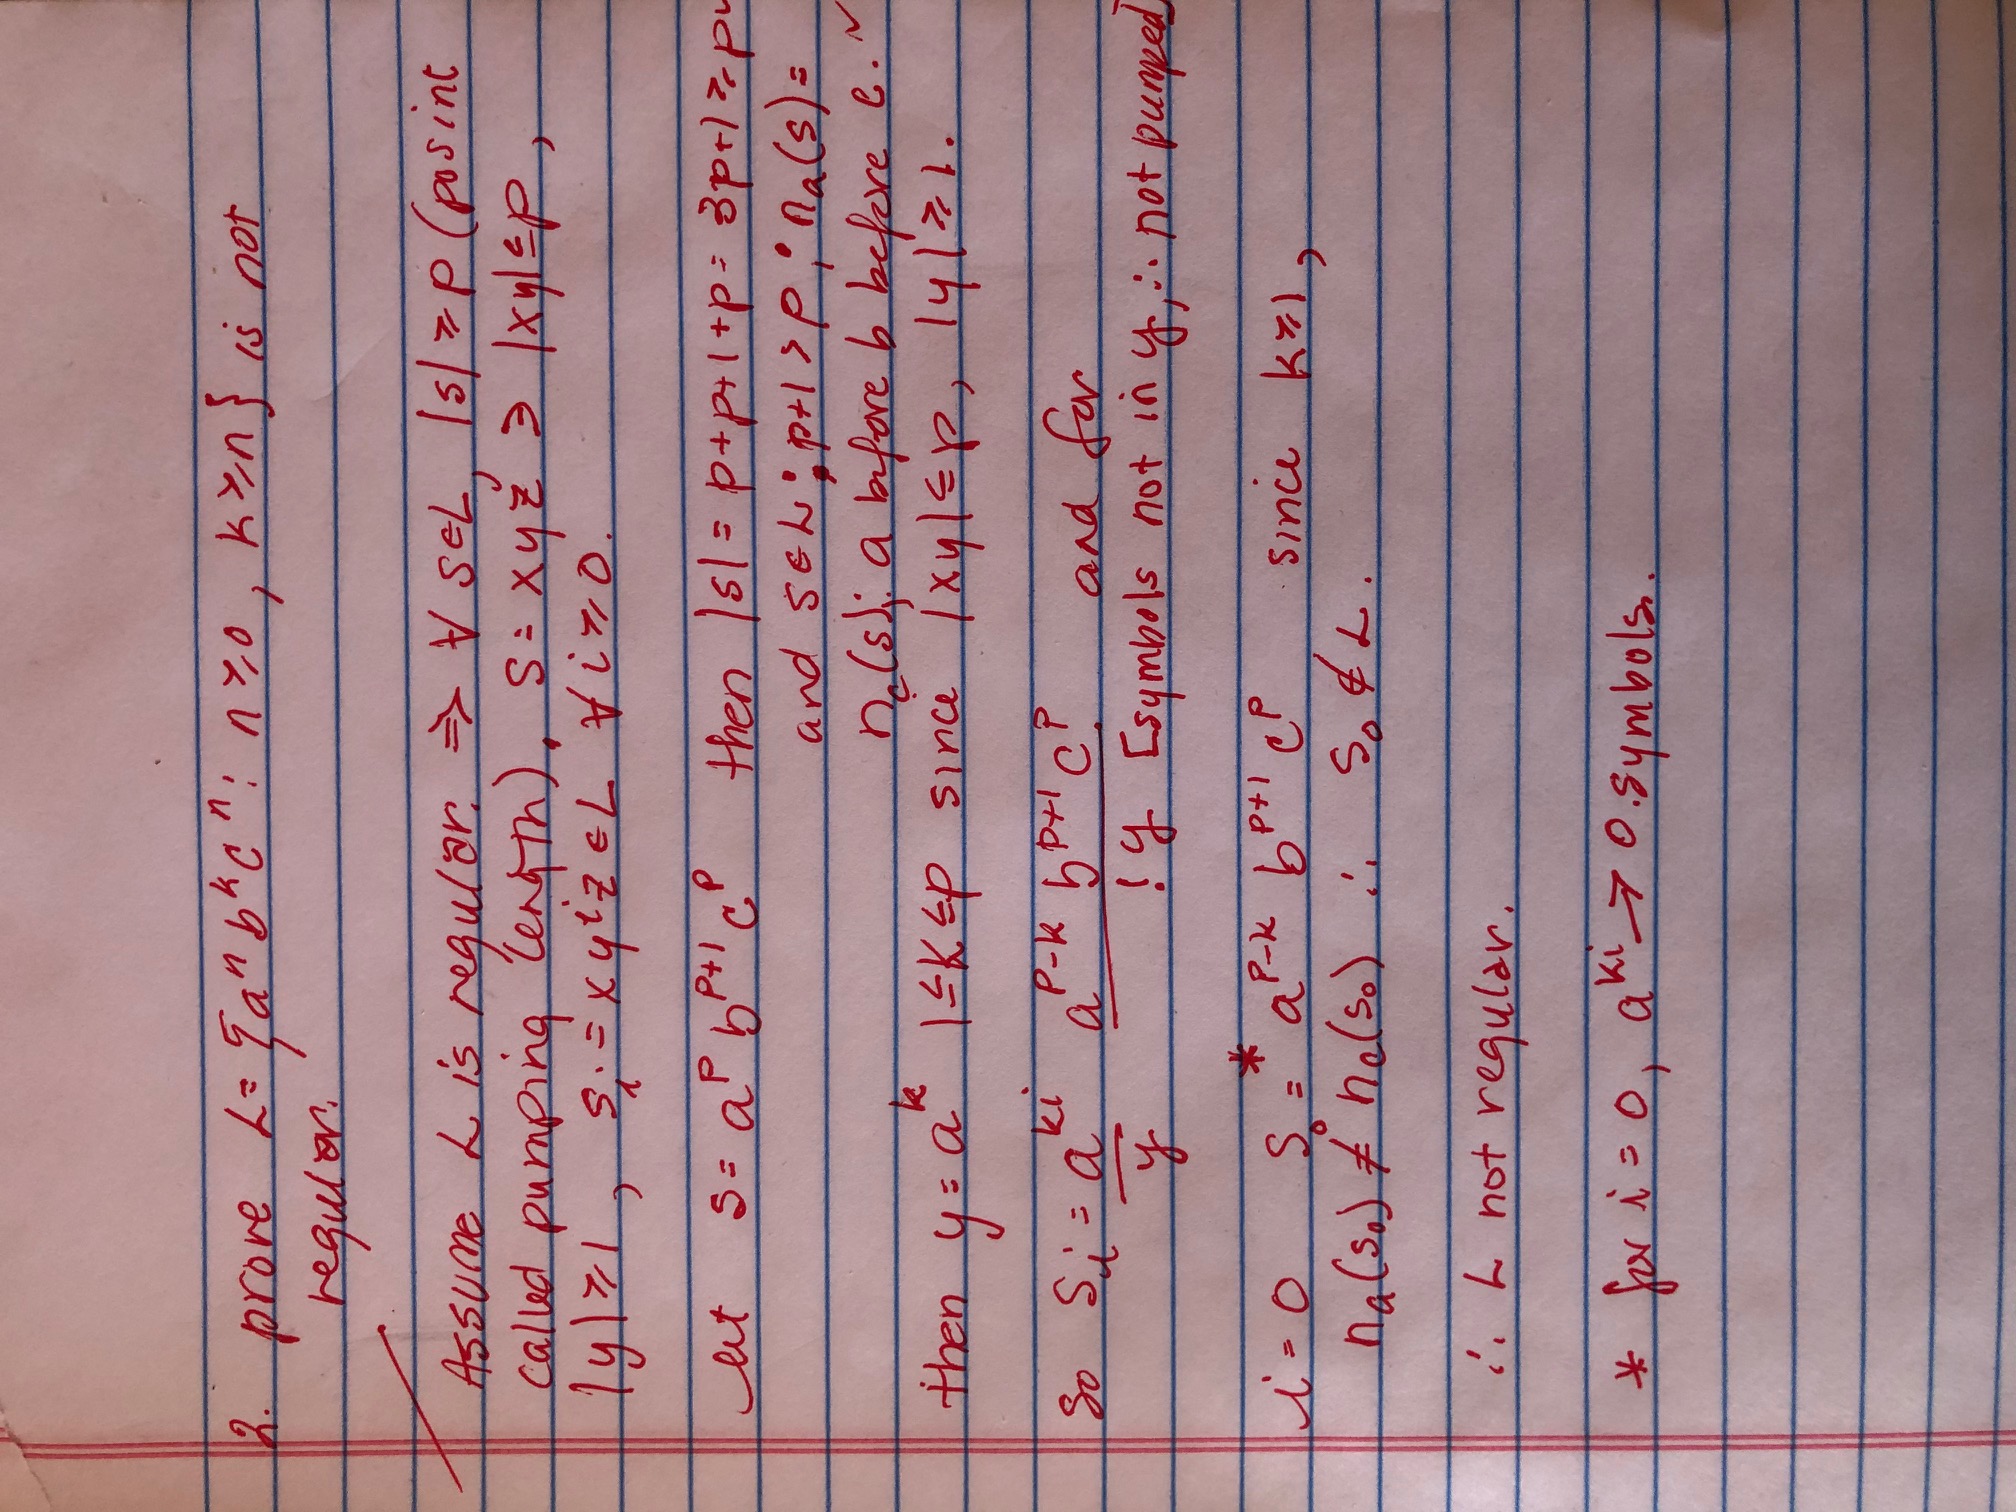 2. prove L = {aⁿ bᵏ cⁿ : n ≥ 0, k ≥ n} is not
regular.
Assume L is regular. ⇒ ∀ s∈L, |s| ≥ p (pos int
called pumping length), s = xyz ∋ |xy| ≤ p,
|y| ≥ 1, sᵢ = xyⁱz ∈ L ∀ i ≥ 0.
let s = aᵖ bᵖ⁺¹ cᵖ then |s| = p+p+1+p = 3p+1 ≥ p ✓
and s∈L; p+1 > p; nₐ(s) =
n_c(s); a before b before c. ✓
then y = aᵏ 1 ≤ k ≤ p since |xy| ≤ p, |y| ≥ 1.
so sᵢ = aᵏⁱ aᵖ⁻ᵏ bᵖ⁺¹ cᵖ and for
y !y [symbols not in y, ∴ not pumped]
i = 0 s₀ =* aᵖ⁻ᵏ bᵖ⁺¹ cᵖ since k ≥ 1,
nₐ(s₀) ≠ n_c(s₀) ∴ s₀ ∉ L.
∴ L not regular.
* for i = 0, aᵏⁱ → 0 symbols.